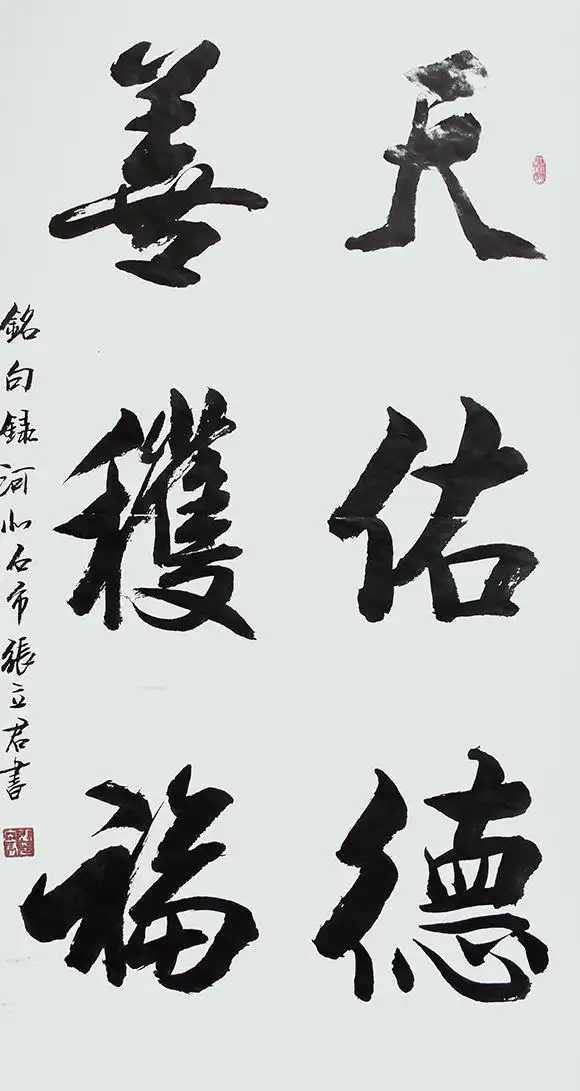 天佑德
善穫福
銘句録河北石市張立君書